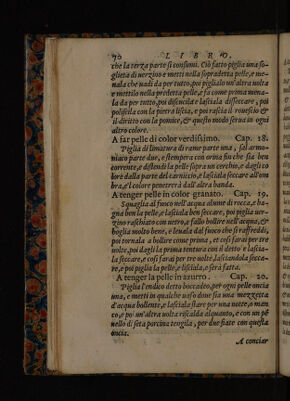 70 LIBRO.
che la terza parte si consumi. Ciò fatto piglia una fo-
glieta di verzino e metti nella sopradetta pelle, e me-
nala che vadi da per tutto, poi piglialo un'altra volta
e mettilo nella predetta pelle, e fa come prima mena-
la da per tutto, poi discucila e lasciala disseccare, poi
poliscila con la pietra liscia, e poi rascia il rovescio &
il diritto con la pomice, & questo modo serva in ogni
altro colore.
A far pelle di color verdissimo. Cap. 18.
Piglia di limatura di rame parte una, sal armo-
niaco parte due, e stempera con orina sin che sia ben
corrente, e distendi la pelle sopra un
lore dalla parte del carniccio, e lasciala seccare all'om
bra, e'l colore penetrerà dall'altra banda.
A tenger pelle in color granato. Cap. 19.
Squaglia al fuoco nell'acqua alume di rocca, e ba-
gna ben la pelle, e lasciala ben seccare, poi piglia ver-
zino raschiato con vetro, e fallo bollire nell'acqua, &
boglia molto bene, e levala dal fuoco che si raffreddi,
poi tornala a bollire come prima, et così farai per tre
volte, poi dagli la prima tentura con il detto e lascia-
la seccare, e così farai per tre volte, lasciandola secca-
re, e poi piglia la pelle, e lisciala, e sarà fatta.
A tenger la pelle in azurro. Cap. 20.
Piglia l'endico detto boccadeo, per ogni pelle oncia
una, e metti in qualche vaso dove sia una mezzetta
d'acqua bollente, e lasciala stare per una notte, o man
co, e poi un'altra volta riscalda alquanto, e con un pe
nello di seta porcina tengila, per due fiate con questa
oncia.
A conciar